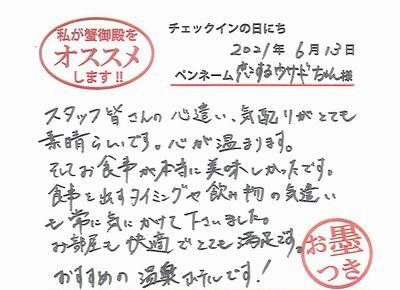 私が蟹御殿を
オススメ
します!!
チェックインの日にち
2021年 6月13日
ペンネーム 恋するウサギちゃん様
スタッフ皆さんの心遣い、気配りがとても
素晴らしいです。心が温まります。
そしてお食事が本当に美味しかったです。
食事を出すタイミングや飲み物の気遣い
も常に気にかけて下さいました。
お部屋も快適でとても満足です。
おすすめの温泉ホテルです!
お墨
つき